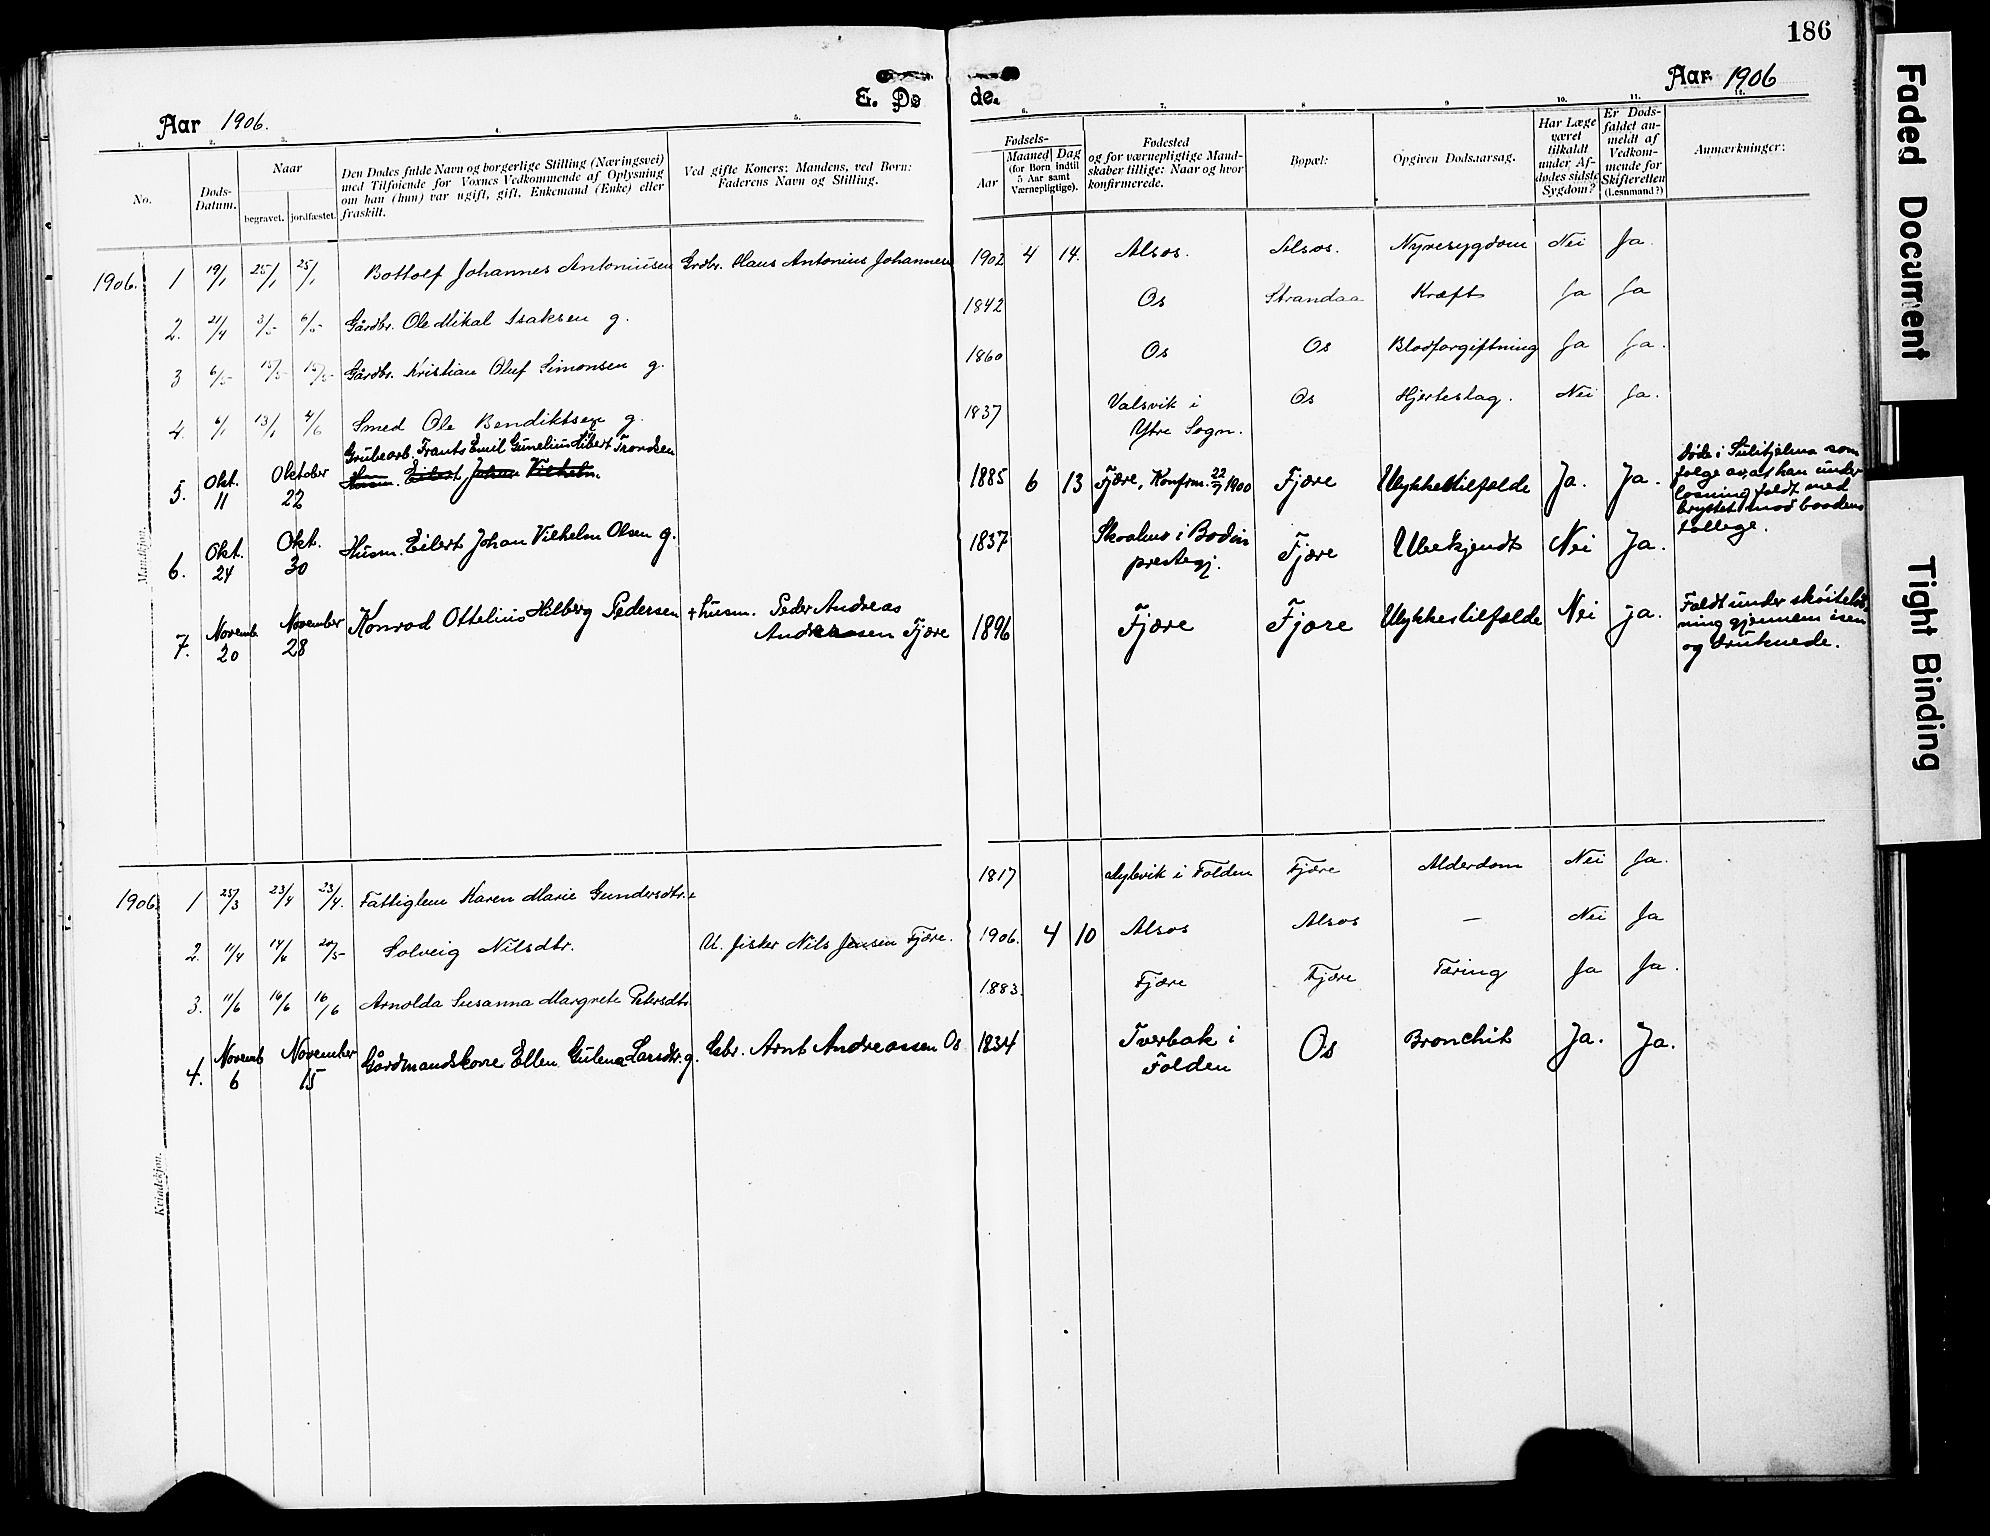 186
Aar 1906.
E. Dø
de.
Aar 1906
1. 2. 3. 4. 5. 6. 7. 8 9 10. 11. 12.
No.
Døds-Datum.
Naar
begravet. jordfæstet.
Den Dødes fulde Navn og borgerlige Stilling (Næringsvei)
med Tilføiende for Voxnes Vedkommende af Oplysning
om han (hun) var ugift, gift, Enkemand (Enke) eller
fraskilt.
Ved gifte Koners: Mandens, ved Børn:
Faderens Navn og Stilling.
Fødsels-
Aar
Maaned Dag
(for Børn indtil
5 Aar samt
Værnepligtige).
Fødested
og for værnepligtige Mand-
skaber tillige: Naar og hvor
konfirmerede.
Bopæl:
Opgiven Dødsaarsag.
Har Læge
været
tilkaldt
under Af-
dødes sidste
Sygdom?
Er Døds-
faldet an-
meldt af
Vedkom-
mende for
Skifteretten
(Lensmand?)
Anmærkninger:
Mandkjøn.
1906. 1 19/1 25/1 25/1 Bottolf Johannes Antoniussen Grdbr. Claus Antonius Johannes 1902 4 14. Alsos. Alsos. Nyresygdom Nei Ja.
2. 21/4 3/5 6/5 Gårdbr. Ole Mikal Isaksen g. 1842 Os Strandaa Kræft Ja Ja
3 6/5 15/5 15/5 Gårdbr. Kristian Oluf Simonsen g. 1860 Os Os Blodforgiftning Ja Ja.
4. 6/1 13/1 4/6 Smed Ole Bendiktsen g. 1837 Valsvik i
Ytre Sogn. Os Hjerteslag. Nei Ja.
Grubearb. Frants Emil Gunelius Sibert Trondsen
5. Okt. 11 Oktober 22 Husm. Eilert Johan Vilhelm. 1885 6 13 Fjære, Konfrm. 22/7 1900 Fjære Ulykkestilfælde Ja. Ja.
Døde i Sulitjelma som
følge av, at han under
losning faldt med
brystet mod baadens
tollege.
6. Okt. 24 Okt. 30 Husm. Eilert Johan Vilhelm Olsen g. 1837 Skoalmo i Bodin
prestegj. Fjære Ubekjendt Nei Ja.
7. Novemb. 20 November 28 Konrad Ottelius Hilberg Pedersen + husm. Peder Andreas
Andreasen Fjære 1896 Fjære Fjære Ulykkestilfælde Nei ja.
Faldt under skøiteløb-
ning gjennem isen
og druknede.
Kvindekjøn.
1906. 1 25/3 23/4 23/4. Fattiglem Karen Marie Gundersdtr. e 1817 Nylevik i Folden Fjære Alderdom Nei Ja.
2. 11/4 14/6 20/5 Solveig Nilsdtr. U. fisker Nils Jensen Fjære. 1906. 4 10 Alsos Alsos — Nei Ja
3. 11/6 16/6 16/6 Arnolda Susanna Margrete Petersdtr 1883. Fjære Fjære Tæring Ja Ja.
4. Novemb 6 November 15 Gårdmandskone Ellen Gulena Larsdtr. g. Gbr. Arnt Andreassen Os 1834 Tverbak i
Folden Os Bronchit Ja. Ja.
Faded Document
Tight Binding